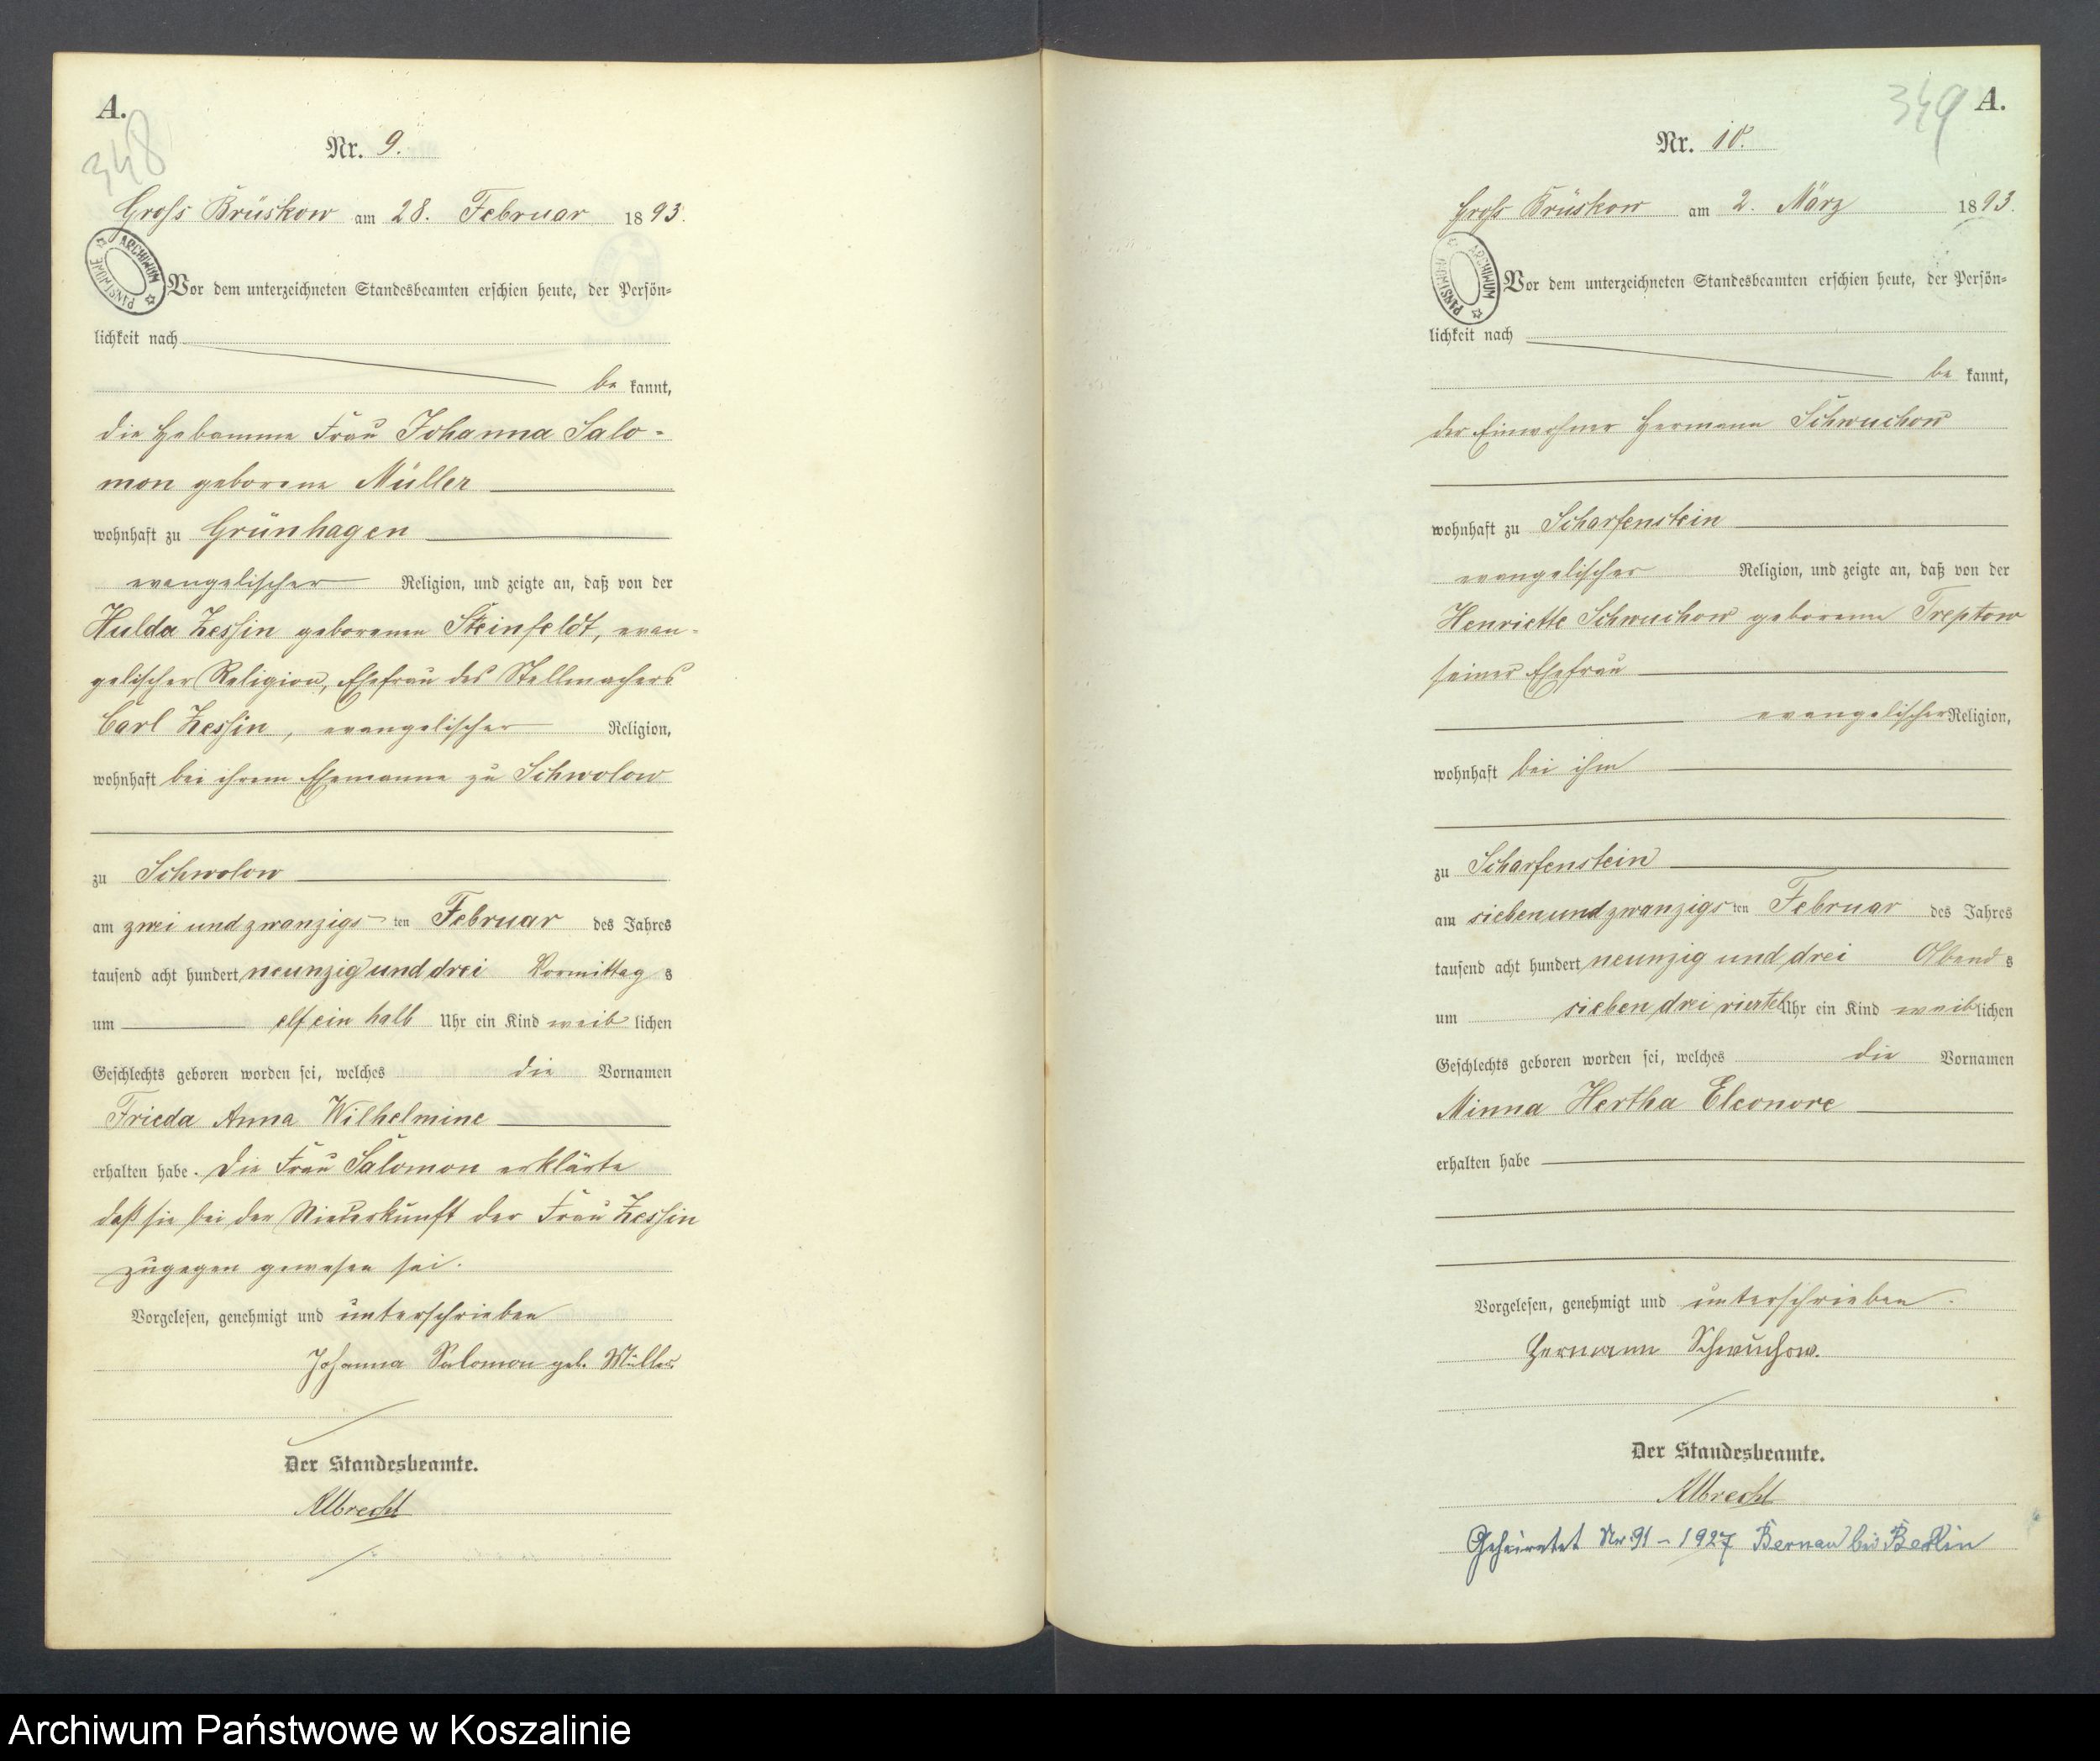 A.
348
Nr. 9.
Gross Brüskow am 28. Februar 1893.
ARCHIWUM PAŃSTWOWE
Vor dem unterzeichneten Standesbeamten erschien heute, der Persön-
lichkeit nach
be kannt,
die Hebamme Frau Johanna Salo-
mon geborene Müller
wohnhaft zu Grünhagen
evangelischer Religion, und zeigte an, daß von der
Hulda Zessin geborenen Steinfeldt, evan-
gelischer Religion, Ehefrau des Stellmachers
Carl Zessin, evangelischer Religion,
wohnhaft bei ihrem Ehemanne zu Schwolow
zu Schwolow
am zwei und zwanzigs ten Februar des Jahres
tausend acht hundert neunzig und drei Vormittag s
um elf ein halb Uhr ein Kind weib lichen
Geschlechts geboren worden sei, welches die Vornamen
Frieda Anna Wilhelmine
erhalten habe. Die Frau Salomon erklärte
daß sie bei der Niederkunft der Frau Zessin
zugegen gewesen sei.
Vorgelesen, genehmigt und unterschrieben
Johanna Salomon geb. Müller
Der Standesbeamte.
Albrecht
349 A.
Nr. 10.
Gross Brüskow am 2. März 1893.
ARCHIWUM PAŃSTWOWE
Vor dem unterzeichneten Standesbeamten erschien heute, der Persön-
lichkeit nach
be kannt,
der Einwohner Hermann Schwuchow
wohnhaft zu Scharfenstein
evangelischer Religion, und zeigte an, daß von der
Henriette Schwuchow geborenen Treptow
seiner Ehefrau
evangelischer Religion,
wohnhaft bei ihm
zu Scharfenstein
am sieben und zwanzigs ten Februar des Jahres
tausend acht hundert neunzig und drei Abend s
um sieben drei viertel Uhr ein Kind weib lichen
Geschlechts geboren worden sei, welches die Vornamen
Minna Hertha Eleonore
erhalten habe
Vorgelesen, genehmigt und unterschrieben.
Hermann Schwuchow.
Der Standesbeamte.
Albrecht
Geheiratet Nr. 91 - 1927 Bernau bei Berlin
Archiwum Państwowe w Koszalinie